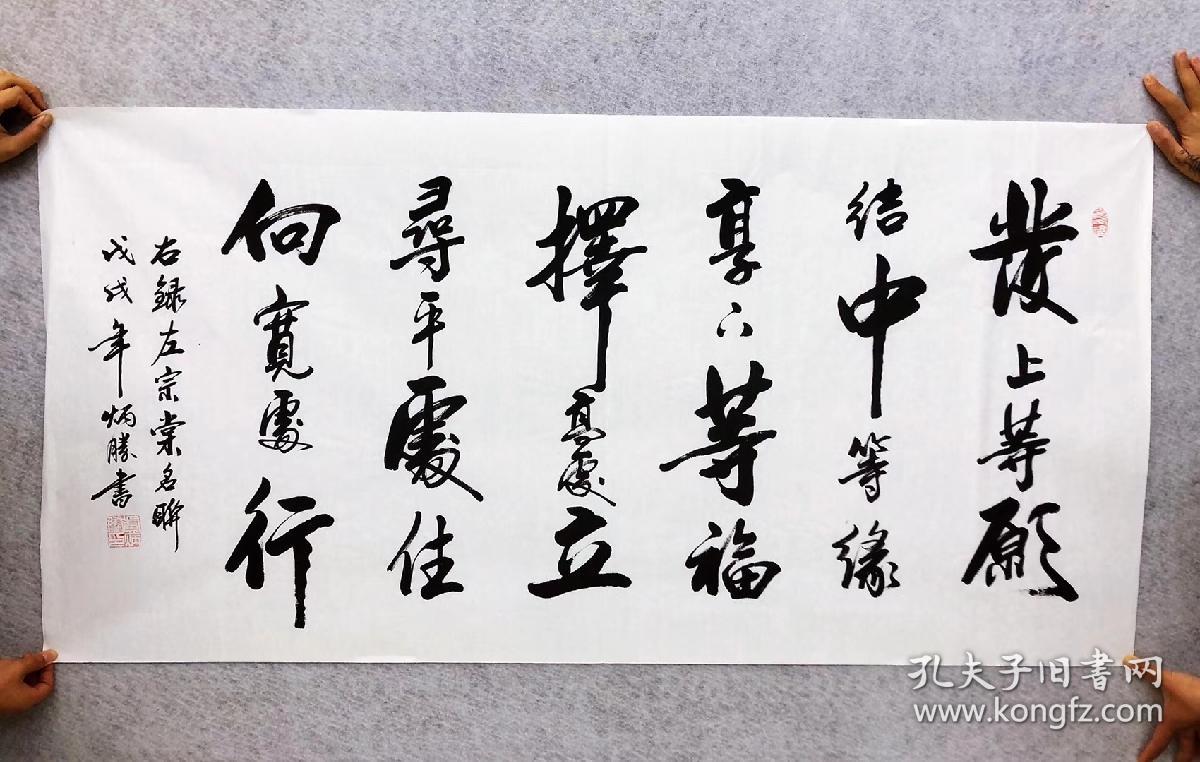 發上等願
結中等緣
享下等福
擇高處立
尋平處住
向寬處行
右録左宗棠名聯
戊戌年炳勝書
孔夫子旧书网
www.kongfz.com